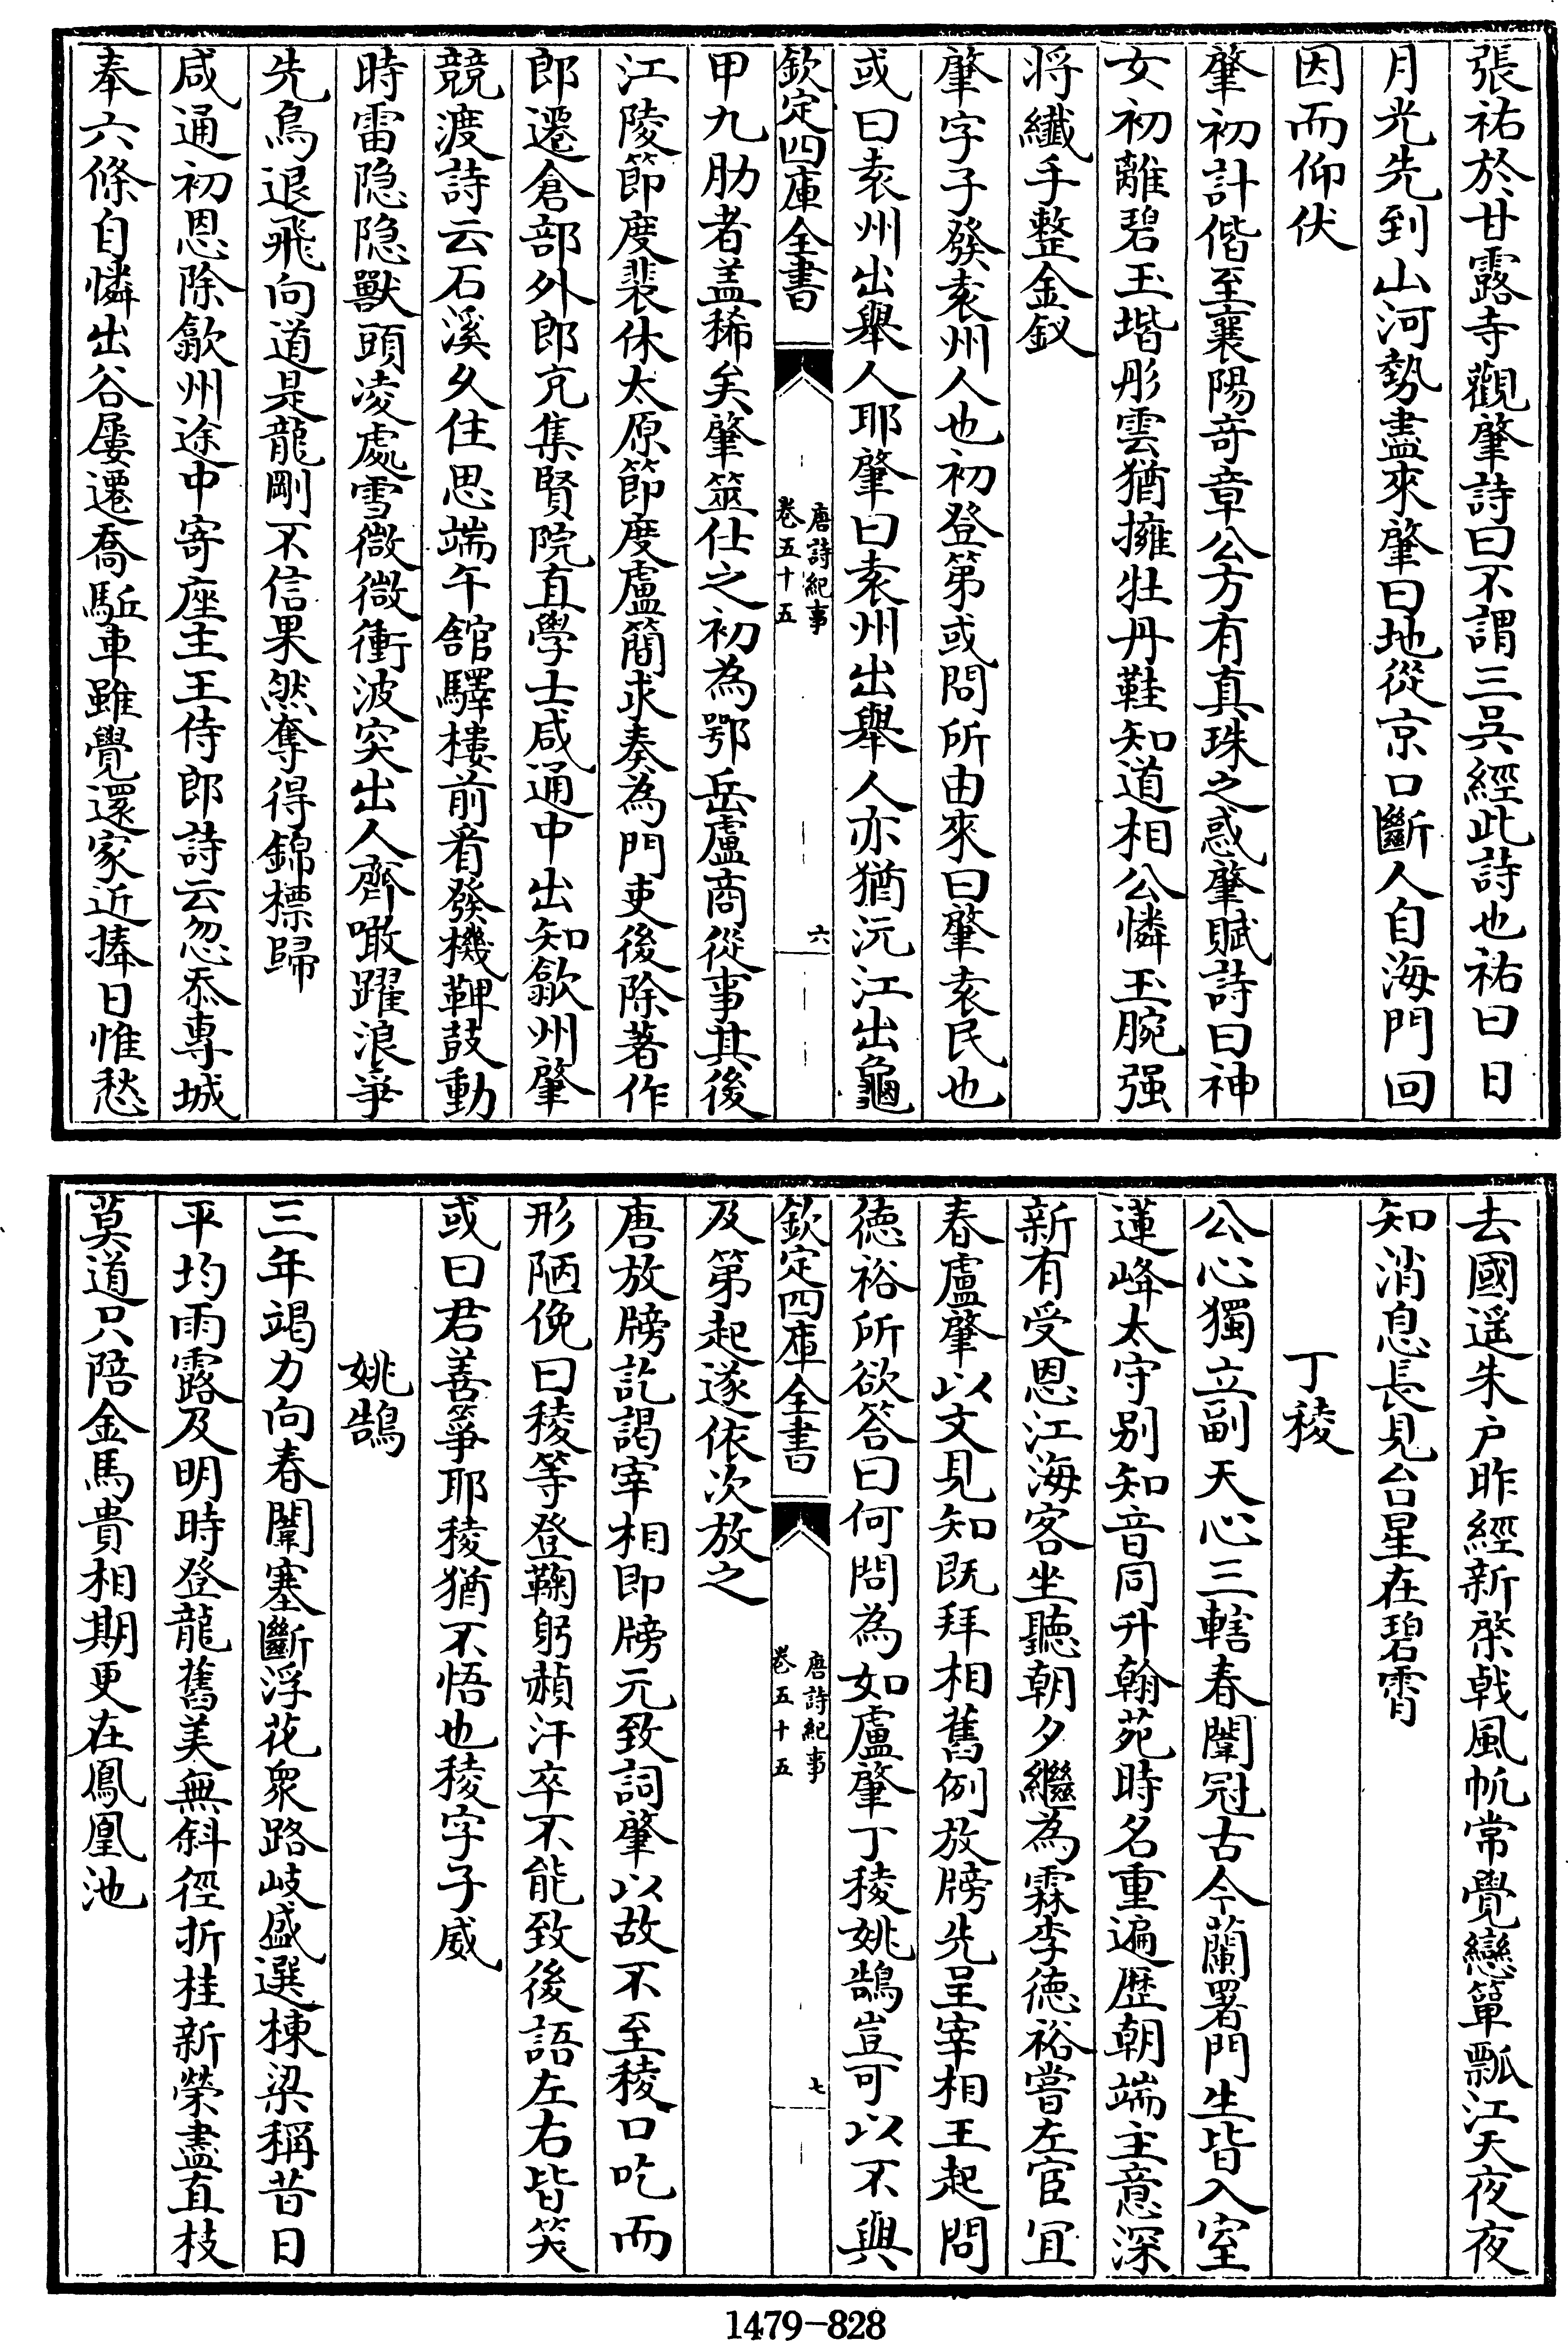 張祐於甘露寺觀肇詩曰不謂三吳經此詩也祐曰日
月光先到山河勢盡來肇曰地從京口斷人自海門回
因而仰伏
肇初計偕至襄陽竒章公方有真珠之惑肇賦詩曰神
女初離碧玉堦彤雲猶擁牡丹鞋知道相公憐玉腕强
将纖手整金釵
肇字子發袁州人也初登第或問所由來曰肇袁民也
或曰袁州出舉人耶肇曰袁州出舉人亦猶沅江出龜
欽定四庫全書
唐詩紀事
卷五十五
六
甲九肋者盖稀矣肇筮仕之初為鄂岳盧商從事其後
江陵節度裴休太原節度盧簡求奏為門吏後除著作
郎遷倉部外郎充集賢院直學士咸通中出知歙州肇
競渡詩云石溪久住思端午舘驛樓前看發機鞞鼓動
時雷隐隐獸頭凌處雪微微衝波突出人齊噉躍浪爭
先鳥退飛向道是龍剛不信果然奪得錦標歸
咸通初恩除歙州途中寄座主王侍郎詩云忽忝專城
奉六條自憐出谷屢遷喬駈車雖覺還家近捧日惟愁
去國遥朱户昨經新棨戟風帆常覺戀簞瓢江天夜夜
知消息長見台星在碧霄
丁稜
公心獨立副天心三轄春闈冠古今蘭署門生皆入室
蓮峰太守别知音同升翰苑時名重遍歴朝端主意深
新有受恩江海客坐聽朝夕繼為霖李徳裕嘗左宦宜
春盧肇以文見知既拜相舊例放牓先呈宰相王起問
徳裕所欲答曰何問為如盧肇丁稜姚鵠豈可以不與
欽定四庫全書
唐詩紀事
卷五十五
七
及第起遂依次放之
唐放牓訖謁宰相即牓元致詞肇以故不至稜口吃而
形陋俛曰稜等登鞠躬頳汗卒不能致後語左右皆笑
或曰君善箏耶稜猶不悟也稜字子威
姚鵠
三年竭力向春闈塞斷浮花衆路岐盛選棟梁稱昔日
平均雨露及明時登龍舊美無斜徑折桂新榮盡直枝
莫道只陪金馬貴相期更在鳳凰池
1479-828